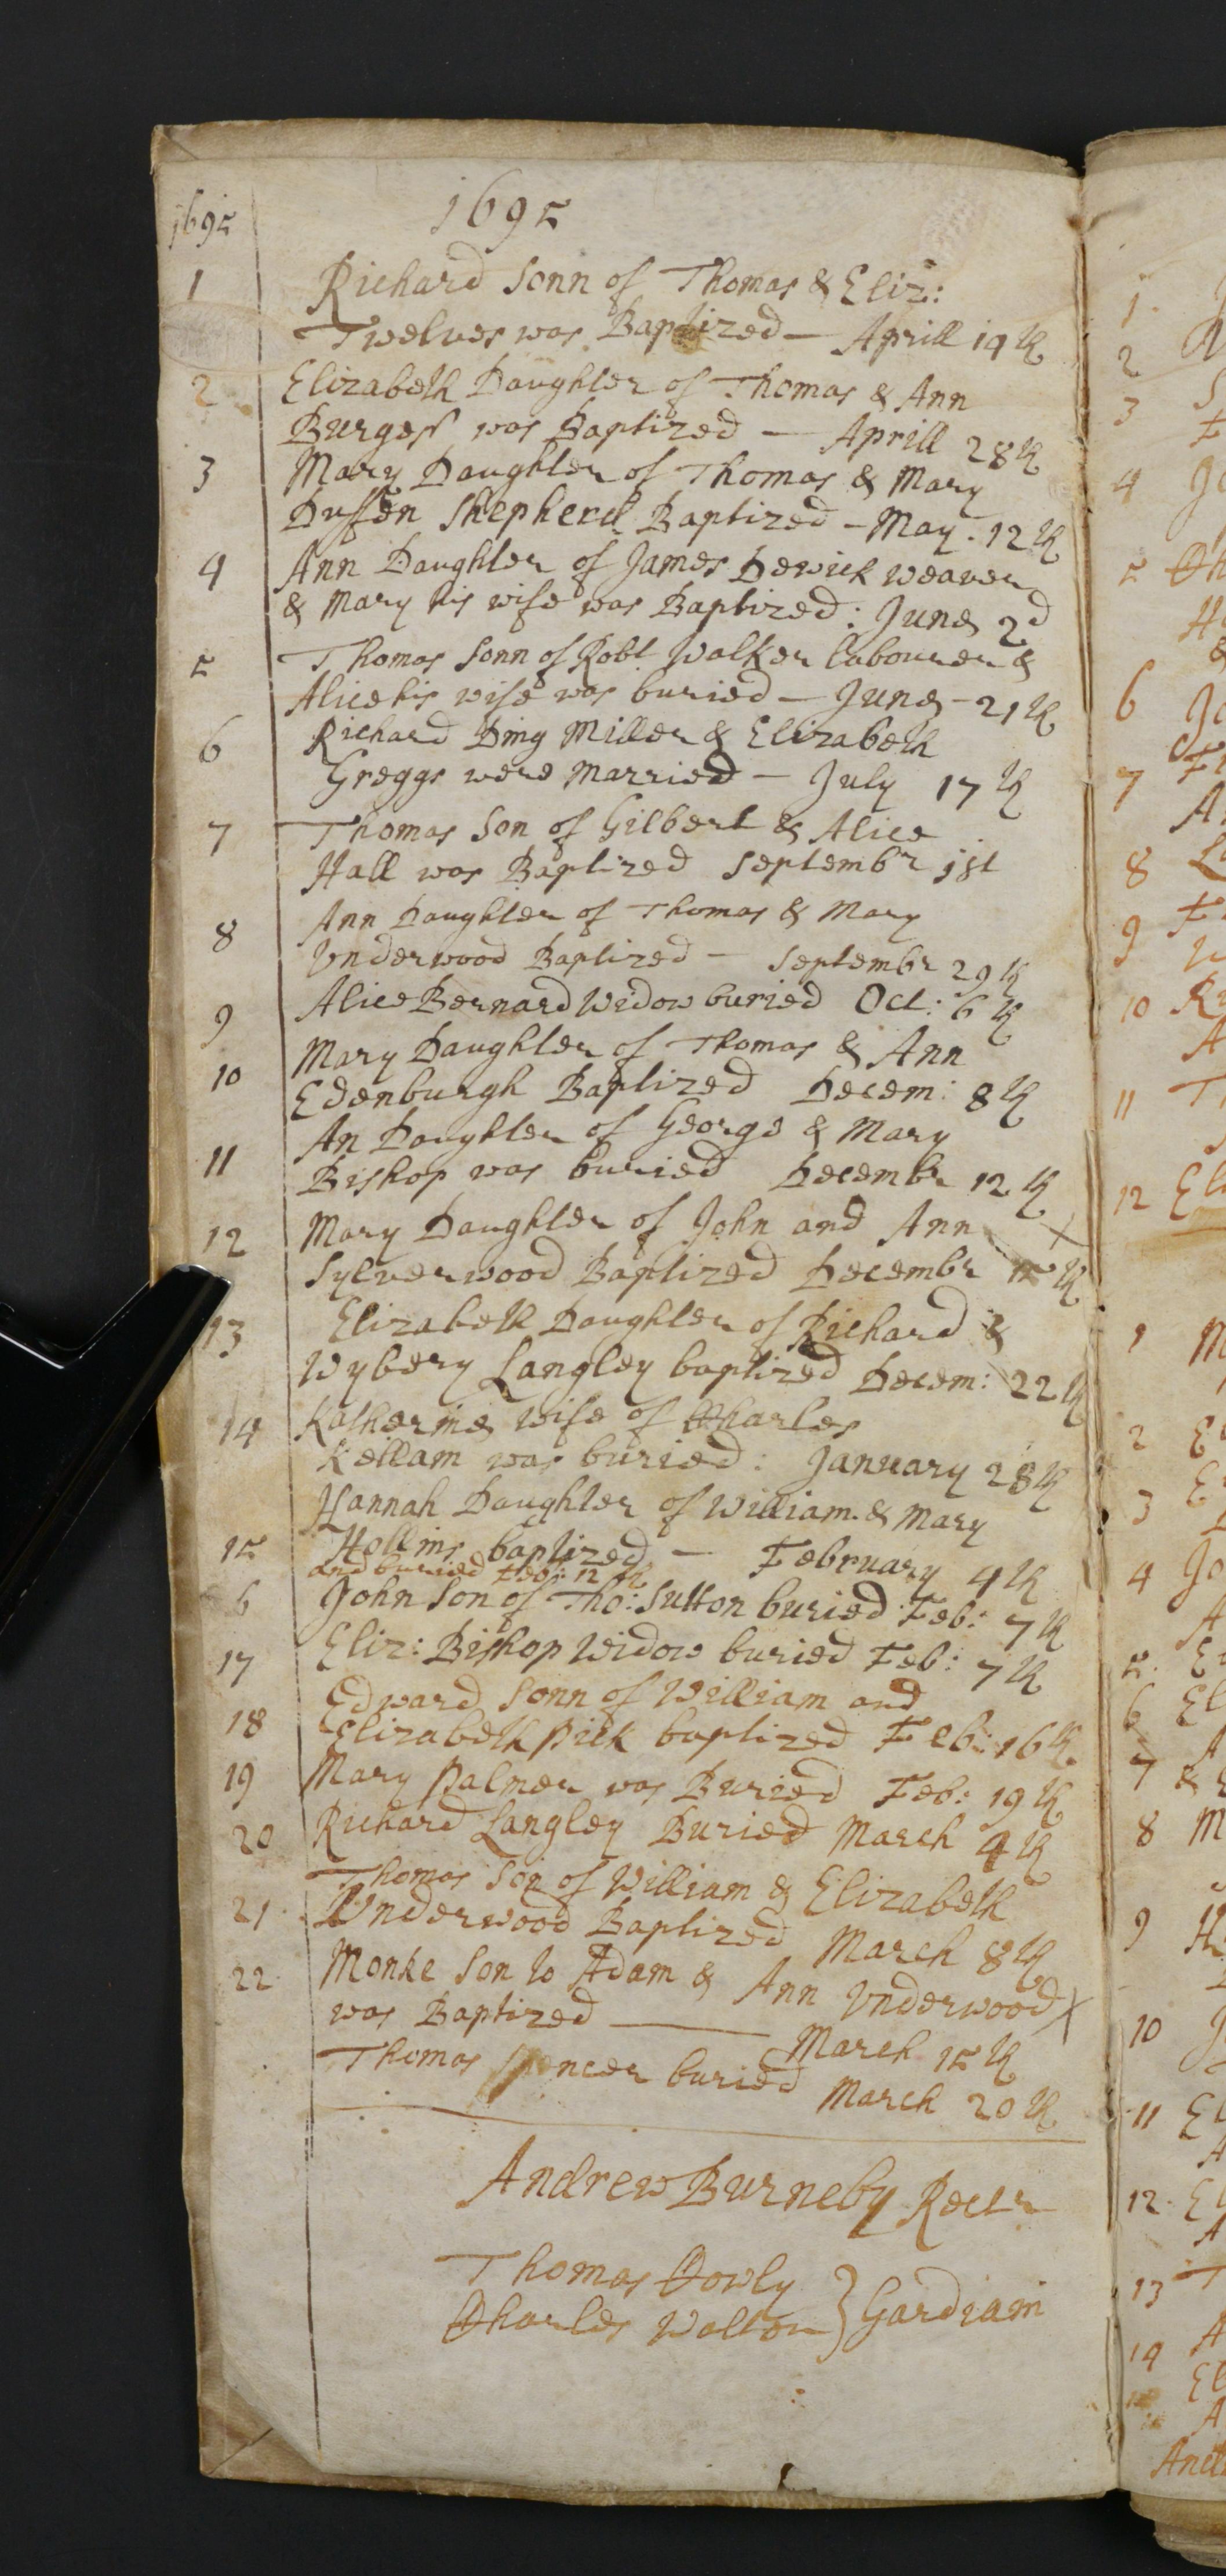 1695
1695
1 Richard Sonn of Thomas & Eliz:
Twelves was Baptized — Aprill 14th
2 Elizabeth Daughter of Thomas & Ann
Burgess was Baptized — Aprill 28th
3 Mary Daughter of Thomas & Mary
Dussen Shepherd Baptized – May . 12th
4 Ann Daughter of James Dewick weaver
& Mary his wife was Baptized : June 2d
5 Thomas Sonn of Robt Walker labourer &
Alice his wife was buried — June – 21th
6 Richard Ding Miller & Elizabeth
Greggs were Married — July 17th
7 Thomas Son of Gilbert & Alice
Hall was Baptized Septembr 1st
8 Ann Daughter of Thomas & Mary
Underwood Baptized — Septembr 29th
9 Alice Bernard Widow buried Oct: 6th
10 Mary Daughter of Thomas & Ann
Edenburgh Baptized Decem: 8th
11 An Daughter of George & Mary
Bishop was buried Decembr 12th
12 Mary Daughter of John and Ann X
Sylverwood Baptized Decembr 15th
13 Elizabeth Daughter of Richard &
Wybery Langley baptized Decem: 22th
14 Katherine wife of Charles
Kellam was buried : January 28th
Hannah Daughter of William & Mary
15 Hollins baptized — February 4th
and buried Feb: 12th
6 John Son of Tho: Sutton buried Feb: 7th
17 Eliz: Bishop Widow buried Feb: 7th
Edward Sonn of William and
18 Elizabeth Pick baptized Feb: 16th
19 Mary Palmer was Buried Feb: 19th
20 Richard Langley Buried March 4th
Thomas Son of William & Elizabeth
21 Underwood Baptized March 8th
22 Monke Son to Adam & Ann Underwood X
was Baptized — March 15th
Thomas Spencer buried March 20th
Andrew Burneby Rectr
Thomas Cowly
Charles Walton } Gardiani
1
2
3
4 Jo
5 Ch
6 Jo
7
8
9
10
11
12 El
1
2
3
4 Jo
5
6 El
7
8
9
10
11
12
13
14